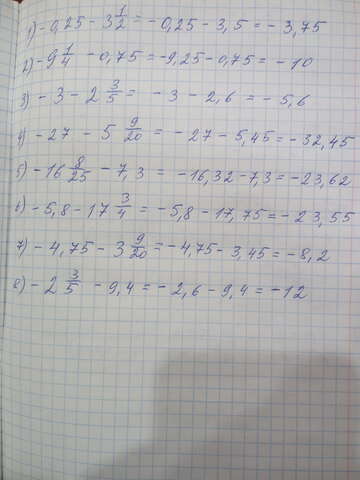 1) - 0,25 - 3 1/2 = - 0,25 - 3,5 = - 3,75
2) - 9 1/4 - 0,75 = - 9,25 - 0,75 = - 10
3) - 3 - 2 3/5 = - 3 - 2,6 = - 5,6
4) - 27 - 5 9/20 = - 27 - 5,45 = - 32,45
5) - 16 8/25 - 7,3 = - 16,32 - 7,3 = - 23,62
6) - 5,8 - 17 3/4 = - 5,8 - 17,75 = - 23,55
7) - 4,75 - 3 9/20 = - 4,75 - 3,45 = - 8,2
8) - 2 3/5 - 9,4 = - 2,6 - 9,4 = - 12